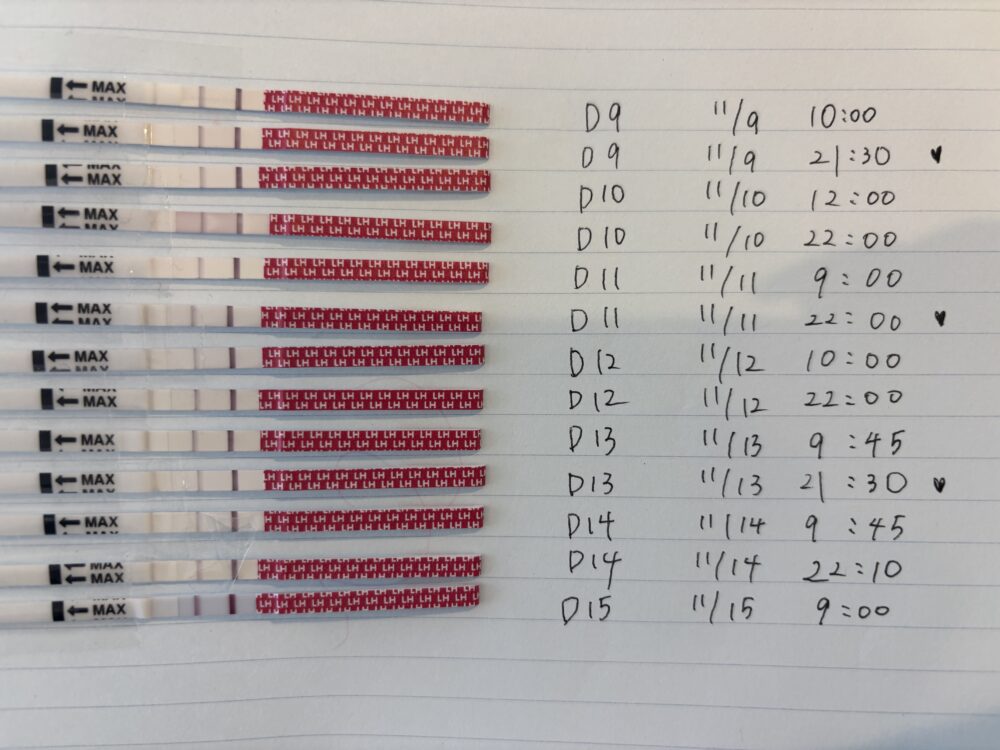 MAX LH LH LH LH LH LH LH LH LH LH D9 11/9 10:00
MAX LH LH LH LH LH LH LH LH LH LH D9 11/9 21:30 ♥
MAX LH LH LH LH LH LH LH LH LH LH D10 11/10 12:00
MAX LH LH LH LH LH LH LH LH LH LH D10 11/10 22:00
MAX LH LH LH LH LH LH LH LH LH LH D11 11/11 9:00
MAX LH LH LH LH LH LH LH LH LH LH D11 11/11 22:00 ♥
MAX LH LH LH LH LH LH LH LH LH LH D12 11/12 10:00
MAX LH LH LH LH LH LH LH LH LH LH D12 11/12 22:00
MAX LH LH LH LH LH LH LH LH LH LH D13 11/13 9:45
MAX LH LH LH LH LH LH LH LH LH LH D13 11/13 21:30 ♥
MAX LH LH LH LH LH LH LH LH LH LH D14 11/14 9:45
MAX LH LH LH LH LH LH LH LH LH LH D14 11/14 22:10
MAX LH LH LH LH LH LH LH LH LH LH D15 11/15 9:00